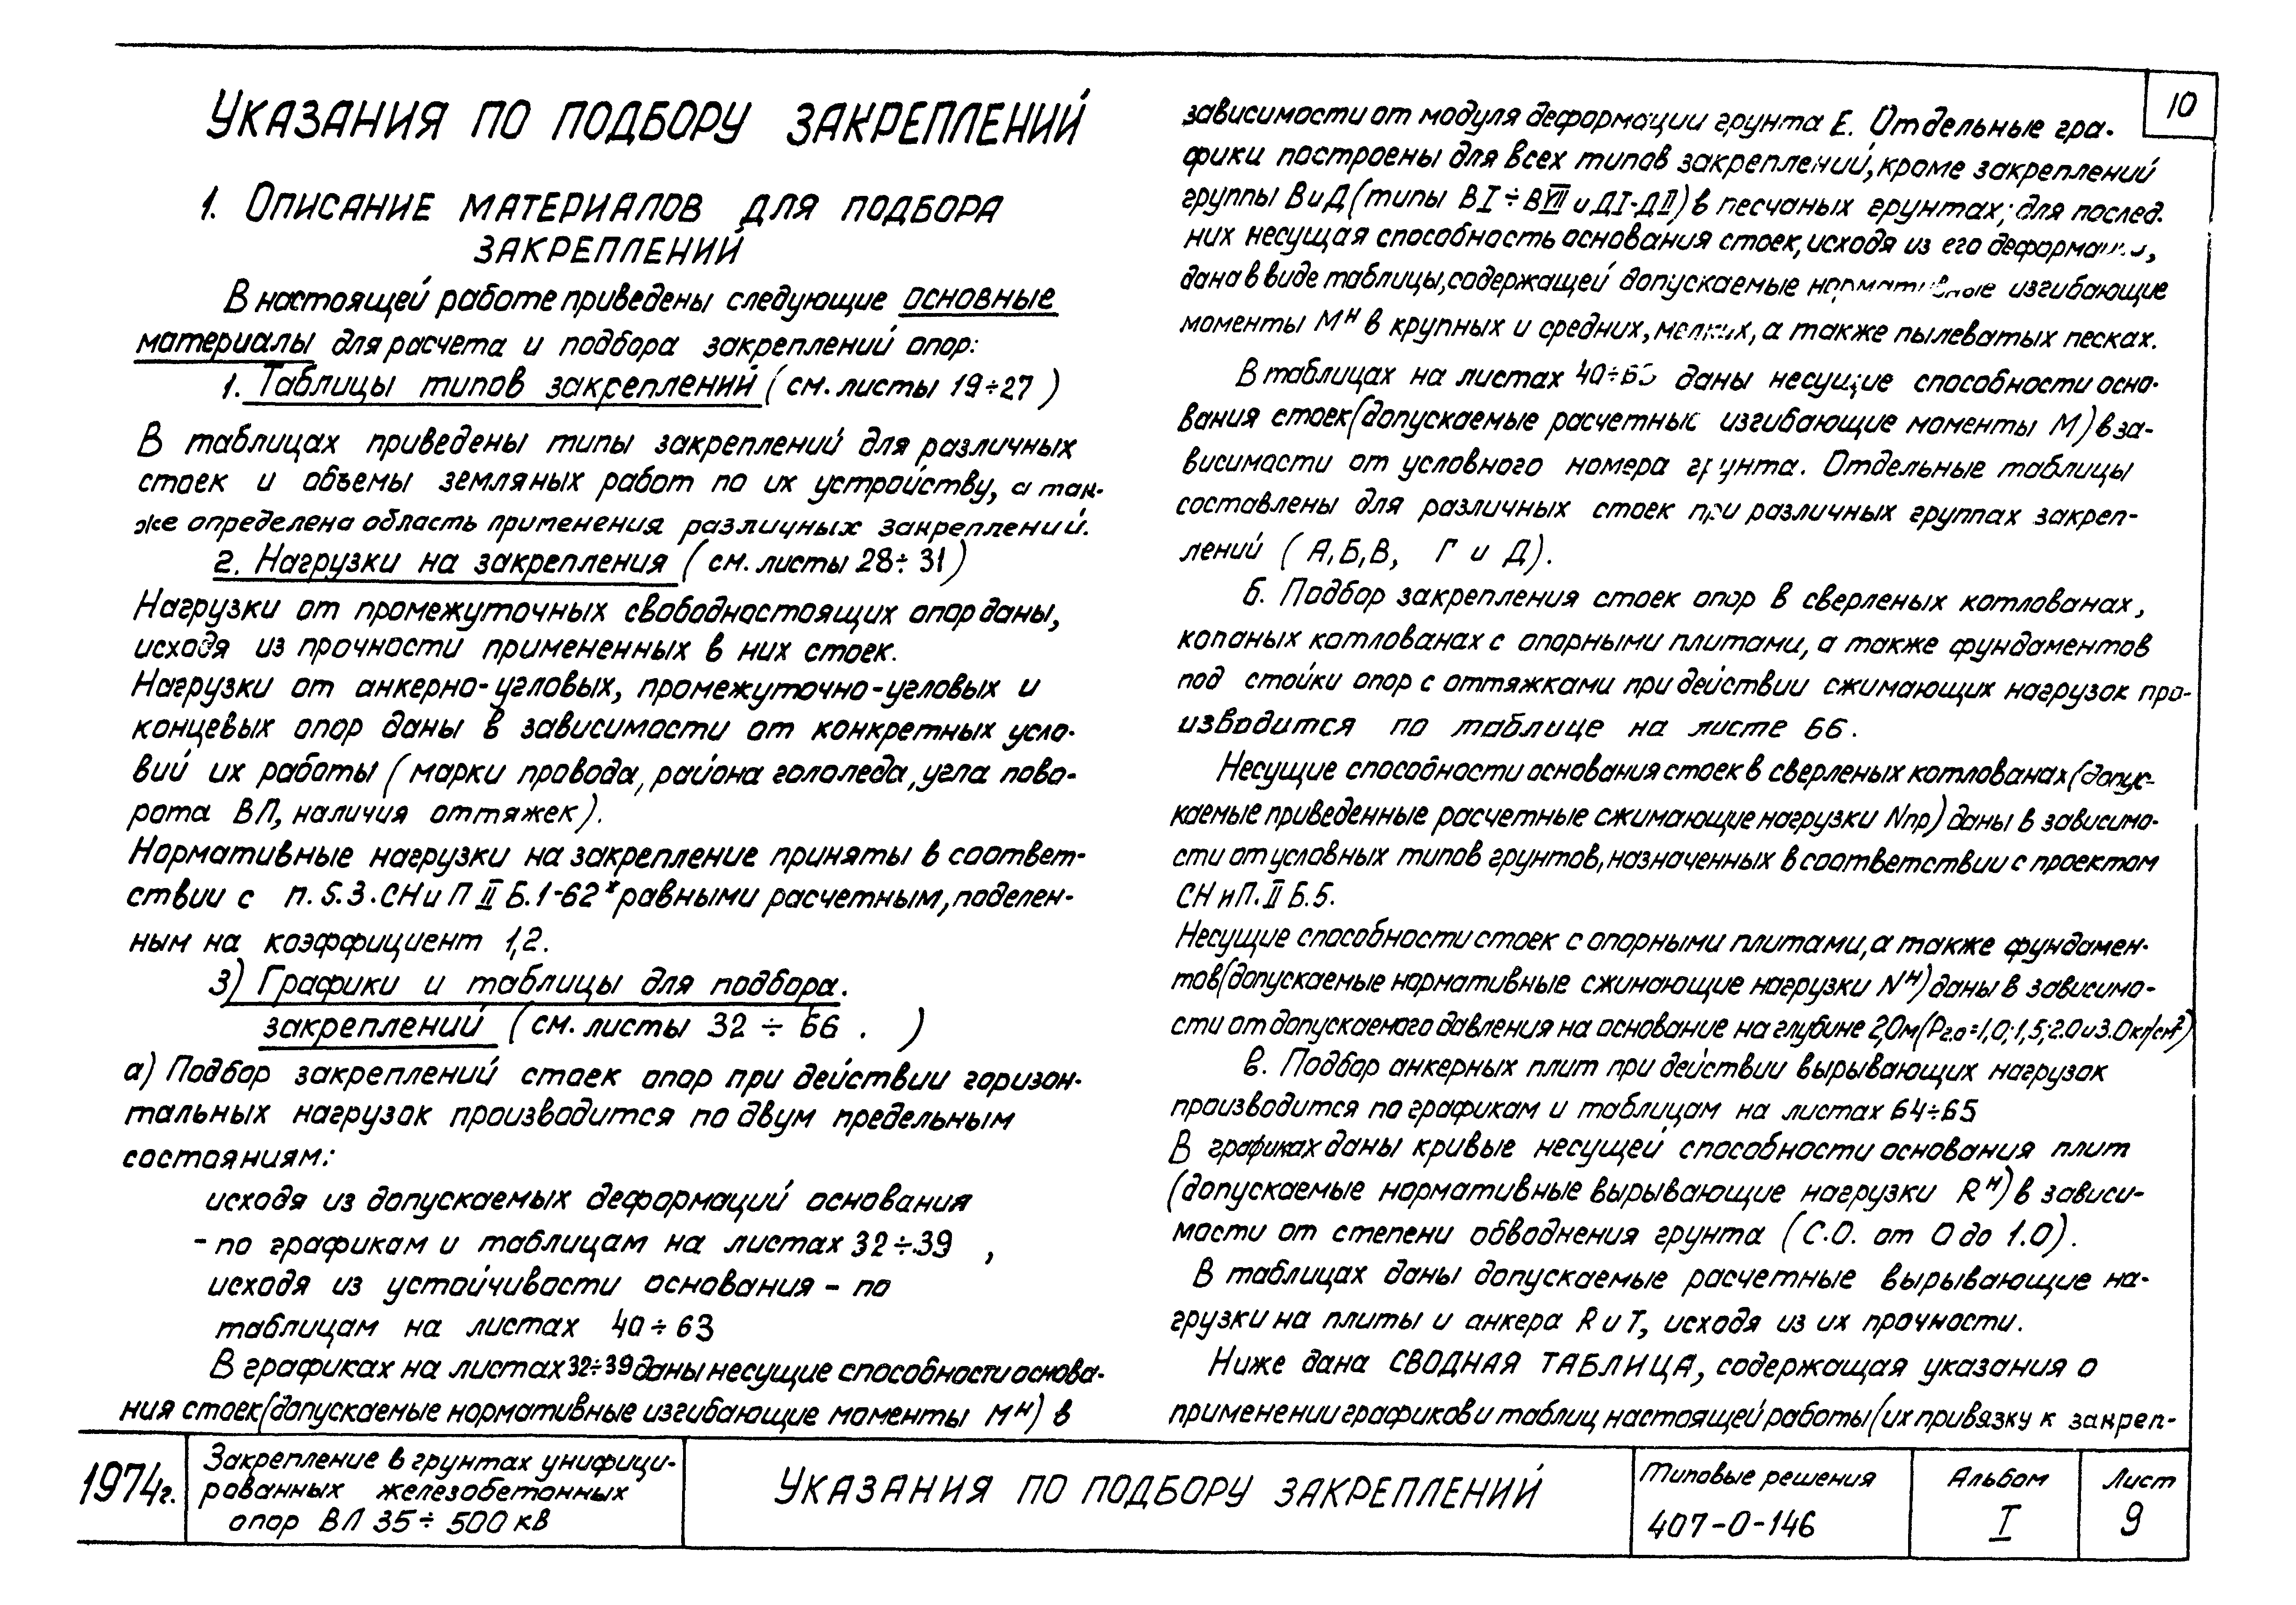 10
УКАЗАНИЯ ПО ПОДБОРУ ЗАКРЕПЛЕНИЙ
1. ОПИСАНИЕ МАТЕРИАЛОВ ДЛЯ ПОДБОРА
ЗАКРЕПЛЕНИЙ
В настоящей работе приведены следующие основные
материалы для расчета и подбора закреплений опор:
1. Таблицы типов закреплений (см. листы 19÷27)
В таблицах приведены типы закреплений для различных
стоек и объемы земляных работ по их устройству, а так-
же определена область применения различных закреплений.
2. Нагрузки на закрепления (см. листы 28÷31)
Нагрузки от промежуточных свободностоящих опор даны,
исходя из прочности примененных в них стоек.
Нагрузки от анкерно-угловых, промежуточно-угловых и
концевых опор даны в зависимости от конкретных усло-
вий их работы (марки провода, района гололеда, угла пово-
рота ВЛ, наличия оттяжек).
Нормативные нагрузки на закрепление приняты в соответ-
ствии с п. 5.3. СНиП II Б.1-62* равными расчетным, поделен-
ным на коэффициент 1,2.
3) Графики и таблицы для подбора.
закреплений (см. листы 32 ÷ 66 . )
а) Подбор закреплений стоек опор при действии горизон-
тальных нагрузок производится по двум предельным
состояниям:
исходя из допускаемых деформаций основания
- по графикам и таблицам на листах 32÷39 ,
исходя из устойчивости основания - по
таблицам на листах 40÷63
В графиках на листах 32÷39 даны несущие способности основа-
ния стоек (допускаемые нормативные изгибающие моменты Mᴴ) в
зависимости от модуля деформации грунта Е. Отдельные гра-
фики построены для всех типов закреплений, кроме закреплений
группы В и Д (типы ВI÷ВVII и ДI-ДII) в песчаных грунтах; для послед-
них несущая способность основания стоек, исходя из его
дана в виде таблицы, содержащей допускаемые нормативные изгибающие
моменты Mᴴ в крупных и средних, мелких, а также пылеватых песках.
В таблицах на листах 40÷63 даны несущие способности осно-
вания стоек (допускаемые расчетные изгибающие моменты М) в за-
висимости от условного номера грунта. Отдельные таблицы
составлены для различных стоек при различных группах закреп-
лений (А, Б, В, Г и Д).
б. Подбор закрепления стоек опор в сверленых котлованах,
копаных котлованах с опорными плитами, а также фундаментов
под стойки опор с оттяжками при действии сжимающих нагрузок про-
изводится по таблице на листе 66.
Несущие способности основания стоек в сверленых котлованах (допус-
каемые приведенные расчетные сжимающие нагрузки Nпр) даны в зависимо-
сти от условных типов грунтов, назначенных в соответствии с проектом
СНиП. II Б.5.
Несущие способности стоек с опорными плитами, а также фундамен-
тов (допускаемые нормативные сжинающие нагрузки Nᴴ) даны в зависимо-
сти от допускаемого давления на основание на глубине 2,0м (Рг.о=1,0; 1,5; 2.0 и 3.0 кг/см²)
в. Подбор анкерных плит при действии вырывающих нагрузок
производится по графикам и таблицам на листах 64÷65
В графиках даны кривые несущей способности основания плит
(допускаемые нормативные вырывающие нагрузки Rᴴ) в зависи-
мости от степени обводнения грунта (С.О. от 0 до 1.0).
В таблицах даны допускаемые расчетные вырывающие на-
грузки на плиты и анкера R и T, исходя из их прочности.
Ниже дана СВОДНАЯ ТАБЛИЦА, содержащая указания о
применении графиков и таблиц настоящей работы (их привязку к закреп-
1974г.
Закрепление в грунтах унифици-
рованных железобетонных
опор ВЛ 35÷500 кВ
УКАЗАНИЯ ПО ПОДБОРУ ЗАКРЕПЛЕНИЙ
Типовые решения
407-0-146
Альбом
I
Лист
9